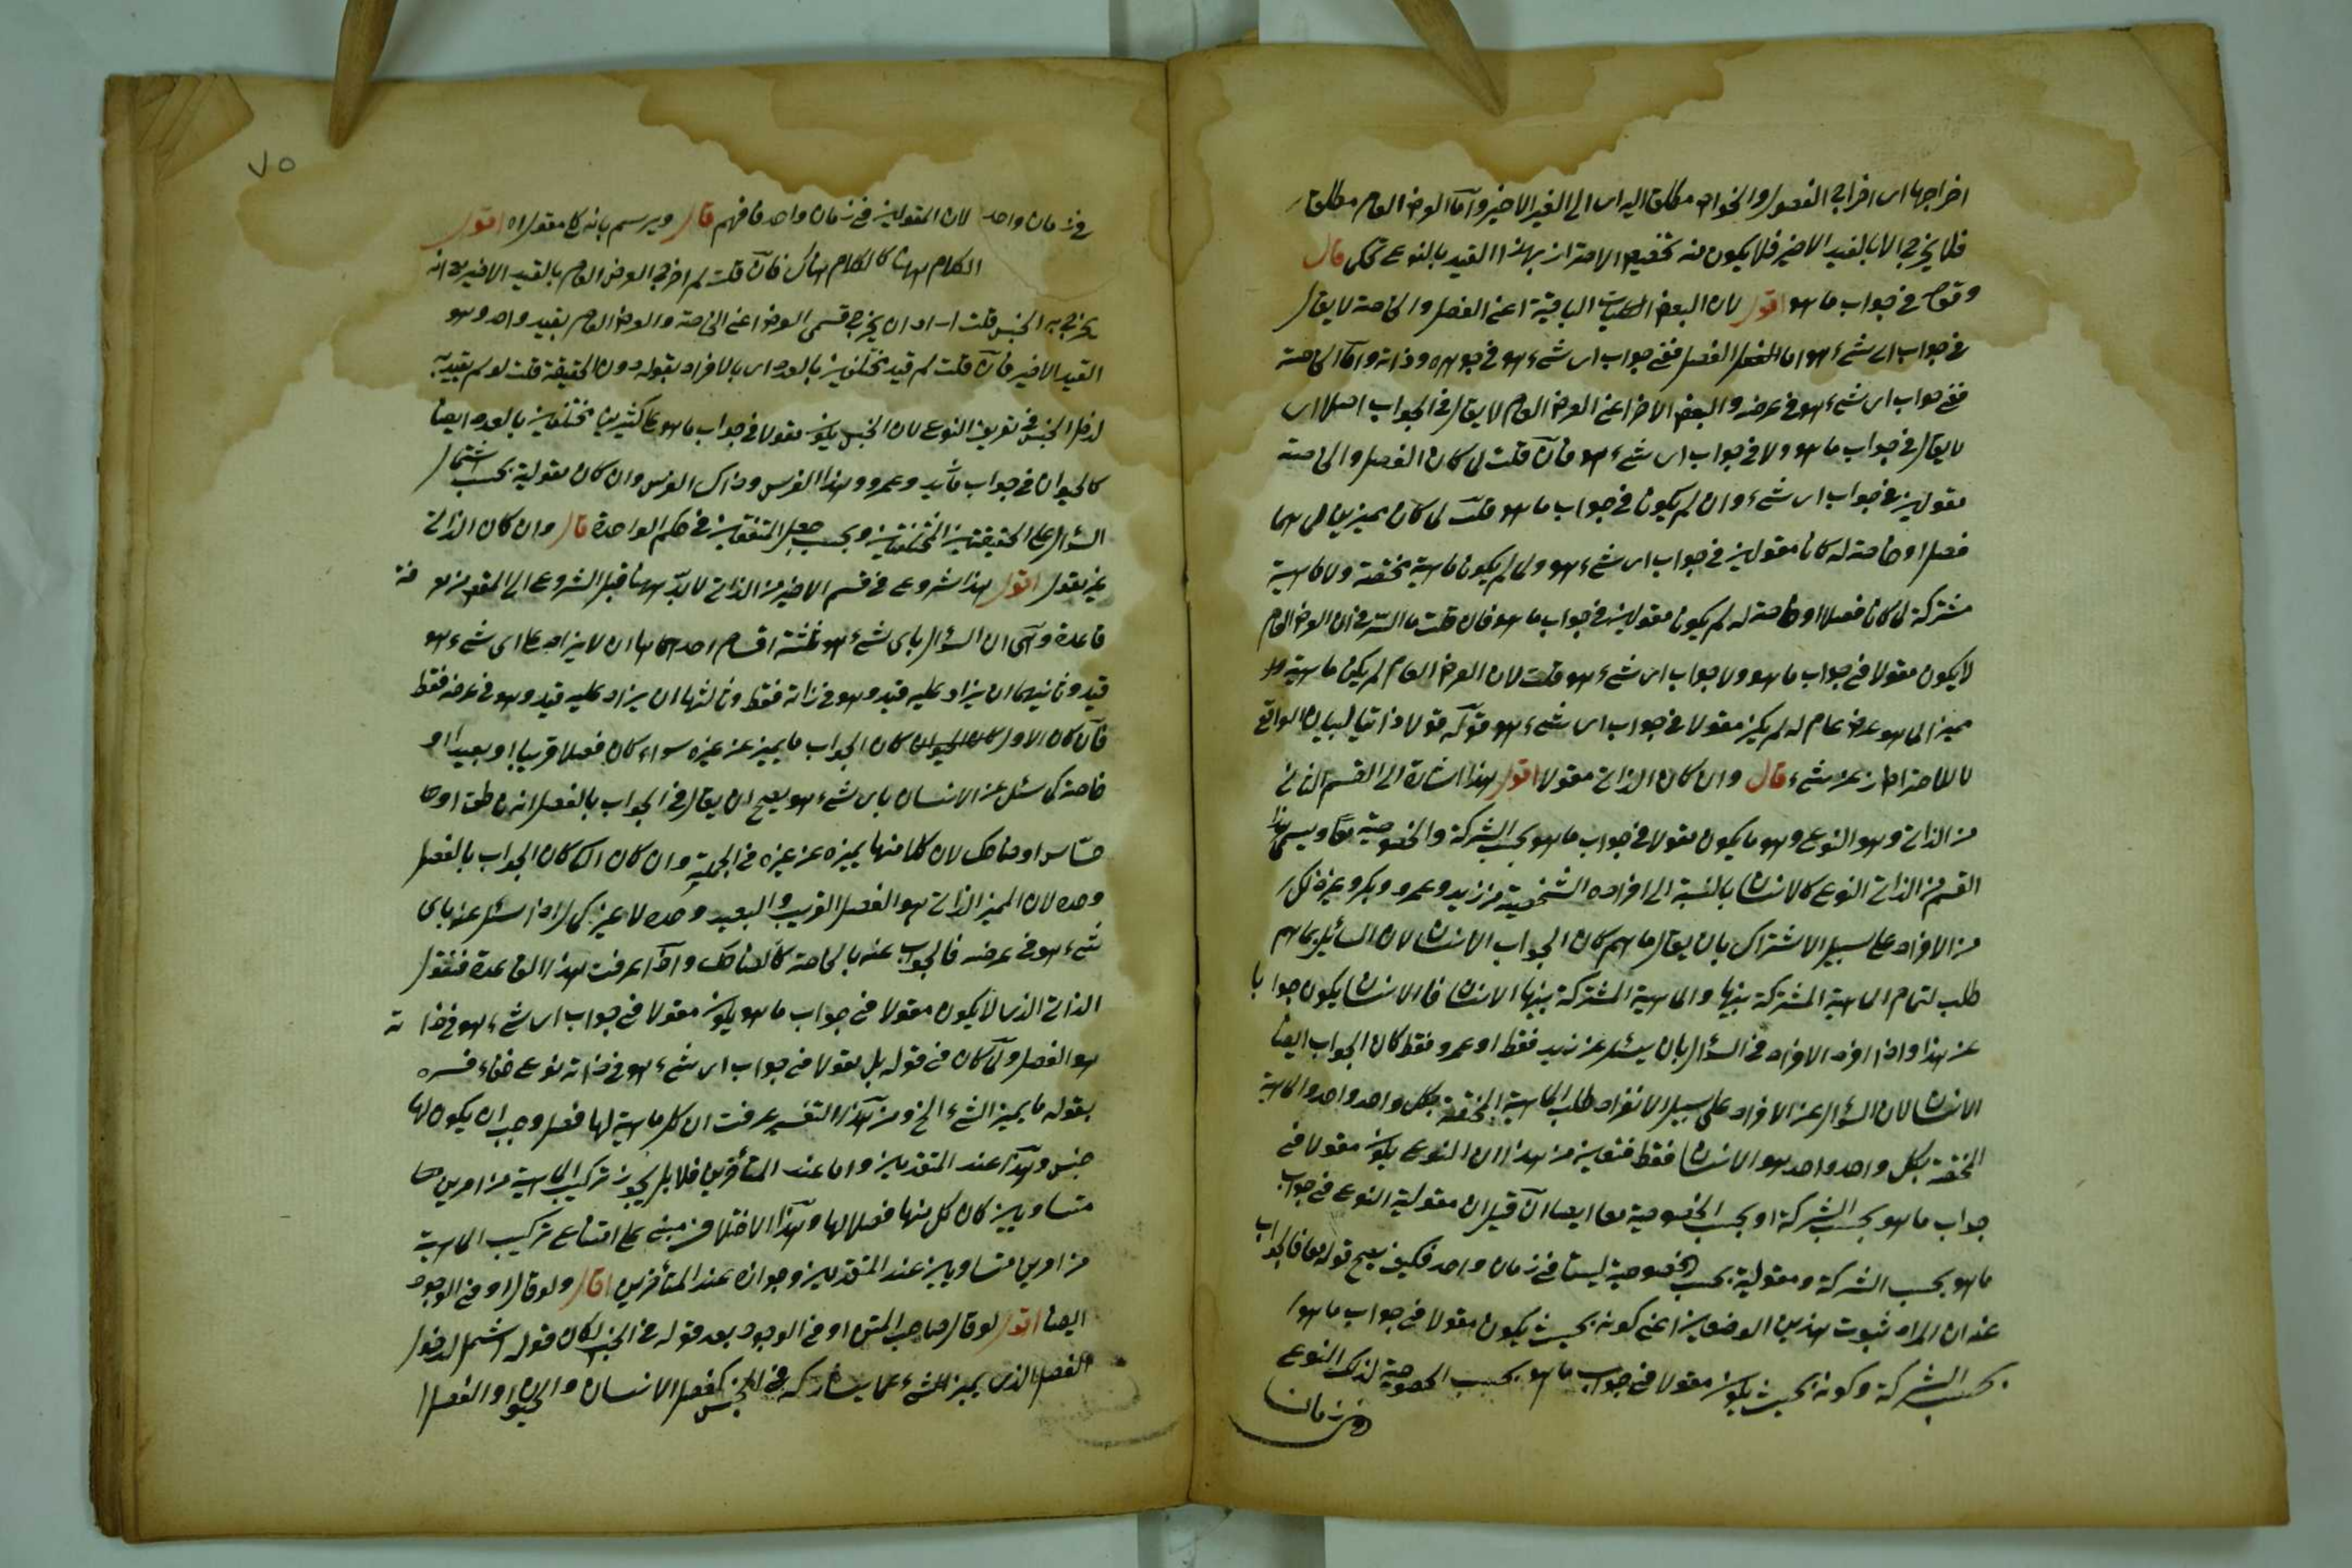 اخراجها اى اخراج الفصول والخواص مطلق اليه اى الى القيد الاخير واما العرض العام مطلق
فلا يخرج الا بالقيد الاخير فلا يكون فيه تخصيص الاحتراز بهذا القيد بالنوع تحكم قال
وقوله فى جواب ما هو اقول لان البعض الكليات الباقية اعنى الفصل والخاصة لا يقال
فى جواب اى شئ هو اما الفصل ففى جواب اى شئ هو فى جوهره وذاته واما الخاصة
ففى جواب اى شئ هو فى عرضه والبعض الآخر اعنى العرض العام لا يقال فى الجواب اصلا اى
لا يقال فى جواب ما هو ولا فى جواب اى شئ هو فان قلت لم كان الفصل والخاصة
مقولين فى جواب اى شئ وان لم يكونا فى جواب ما هو قلت لما كانا مميزين لما هما
فصل او خاصة له كانا مقولين فى جواب اى شئ هو ولما لم يكونا ماهية مختصة ولا ماهية
مشتركة لما كانا فصلا او خاصة له لم يكونا مقولين فى جواب ما هو فان قلت ما السر فى ان العرض العام
لا يكون مقولا فى جواب ما هو ولا جواب اى شئ هو قلت لان العرض العام لم يكن ماهية ولا
مميزا لما هو عرض عام له لم يكن مقولا فى جواب اى شئ هو قوله قولا ذاتيا لبيان الواقع
لا للاحتراز عن شئ قال وان كان الذاتى مقولا اقول هذا اشارة الى القسم الثانى
من الذاتى وهو النوع وهو ما يكون مقولا فى جواب ما هو بحسب الشركة والخصوصية معا ويسمى هذا
القسم من الذاتى النوع كالانسان بالنسبة الى افراده الشخصية من زيد وعمرو وبكر وغير ذلك
من الافراد على سبيل الاشتراك بان يقال ما هم كان الجواب الانسان لان السائل بما هم
طلب لتمام الماهية المشتركة بينها والماهية المشتركة بينها الانسان فالانسان يكون جوابا
عن هذا واذا افرد الافراد فى السؤال بان يسئل عن زيد فقط او عمرو فقط كان الجواب ايضا
الانسان لان السؤال عن الافراد على سبيل الانفراد طلب الماهية المختصة بكل واحد واحد والماهية
المختصة بكل واحد واحد هو الانسان فقط فتعين من هذا ان النوع يكون مقولا فى
جواب ما هو بحسب الشركة او بحسب الخصوصية معا ايضا ان قيل ان مقولية النوع فى جواب
ما هو بحسب الشركة ومقولية بحسب الخصوصية ليستا فى زمان واحد فكيف يصح قوله معا فالجواب
عنه ان المراد ثبوت هذين الوصفين اعنى كونه بحيث يكون مقولا فى جواب ما هو
بحسب الشركة وكونه بحيث يكون مقولا فى جواب ما هو بحسب الخصوصية لذلك النوع
فى زمان
٧٥
فى زمان واحد لان المقولين فى زمان واحد فافهم قال ويرسم بانه كلى مقول اه اقول
الكلام ههنا كالكلام هناك فان قلت لم اخرج العرض العام بالقيد الاخير مع انه
يخرج به الجنس قلت اراد ان يخرج قسمى العرض اعنى الخاصة والعرض العام بقيد واحد وهو
القيد الاخير فان قلت لم قيد مختلفين بالعدد اى بالافراد بقوله دون الحقيقة قلت لو لم يقيد به
لدخل الجنس فى تعريف النوع لان الجنس يكون مقولا فى جواب ما هو على كثيرين مختلفين بالعدد ايضا
كالحيوان فى جواب ما زيد وعمرو وهذا الفرس وذاك الفرس وان كان مقولية بحسب اشتمال
السؤال على الحقيقتين المختلفتين وبحسب جعل المتفقين فى حكم الواحدة قال وان كان الذاتى
غير مقول اقول هذا شروع فى قسم الاخير من الذاتى لا بد ههنا قبل الشروع الى المقصود من
قاعدة وهى ان السؤال باى شئ هو ثلثة اقسام احدها ان لا يزاد على اى شئ هو
قيد وثانيها ان يزاد عليه قيد وهو فى ذاته فقط وثالثها ان يزاد عليه قيد وهو فى عرضه فقط
فان كان الاول كان الجواب ما يميز عن غيره سواء كان فصلا قريبا او بعيدا او
خاصة كما سئل عن الانسان باى شئ هو يصح ان يقال فى الجواب بالفصل انه ناطق او
حساس او ضاحك لان كلا منها يميزه عن غيره فى الجملة وان كان الثانى كان الجواب بالفصل
وحده لان المميز الذاتى هو الفصل القريب والبعيد وحده لا غير كما اذا سئل عنه باى
شئ هو فى عرضه فالجواب عنه بالخاصة كالضاحك واذا عرفت هذا القاعدة فنقول
الذاتى الذى لا يكون مقولا فى جواب ما هو يكون مقولا فى جواب اى شئ هو فى ذاته
هو الفصل ولما كان فى قوله بل مقولا فى جواب اى شئ هو فى ذاته نوع خفاء فسره
بقوله ما يميز الشئ الخ ومن هذا التفسير عرفت ان كل ماهية لها فصل وجب ان يكون لها
جنس وهذا عند المتقدمين واما عند المتأخرين فلا بل يجوز تركيب الماهية من امرين
متساويين كان كل منها فصلا لها وهذا الاختلاف مبنى على امتناع تركيب الماهية
من امرين متساويين عند المتقدمين وجوازه عند المتأخرين قال ولو قال او فى الوجود
ايضا اقول لو قال صاحب المتن او فى الوجود بعد قوله فى الجنس لكان قوله اشمل لدخول
الفصل الذى يميز الشئ عما يشاركه فى الجنس كفصل الانسان والحيوان او الفصل